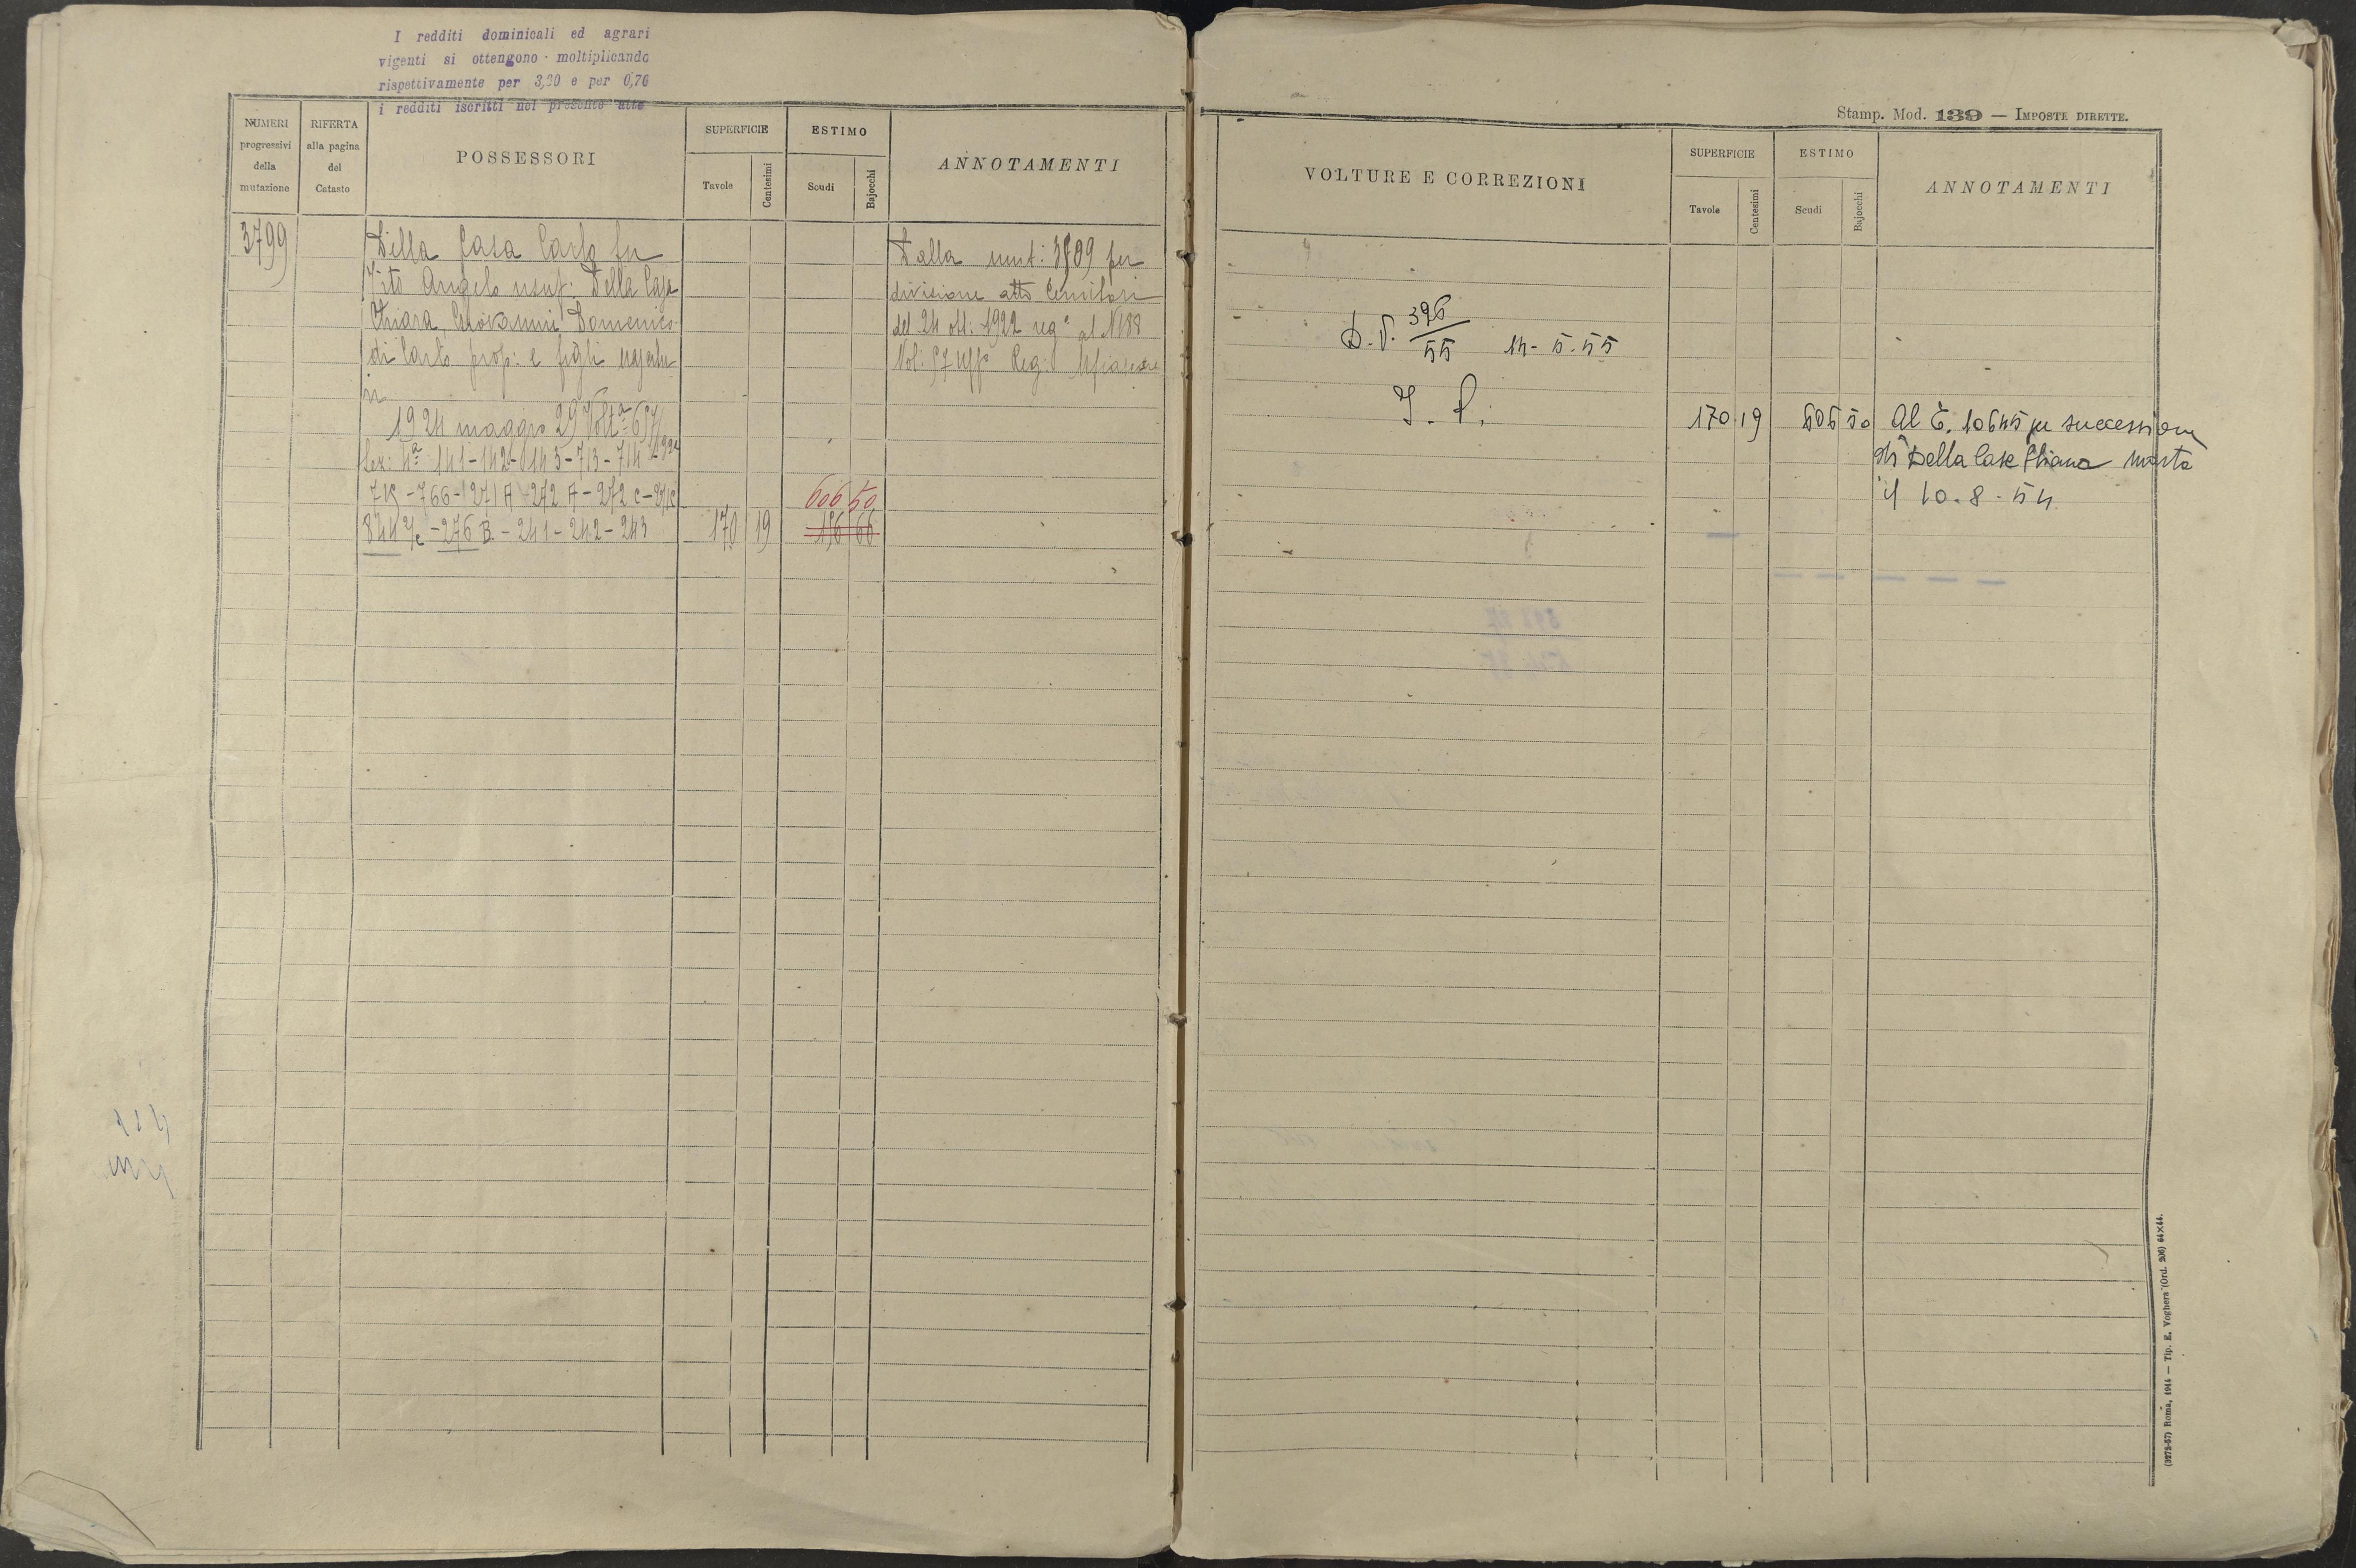 I redditi dominicali ed agrari
vigenti si ottengono moltiplicando
rispettivamente per 3,30 e per 0,76
i redditi iscritti nel presente atto
NUMERI progressivi della mutazione
RIFERTA alla pagina del Catasto
POSSESSORI
SUPERFICIE
Tavole
Centesimi
ESTIMO
Scudi
Bajocchi
ANNOTAMENTI
3799
Della Casa Carlo fu
Vito Angelo usuf: Della Casa
Chiara, Giovanni Domenico
di Carlo prop: e figli
1924 maggio 29 Volta
141-142-143-713-714
-766-271A-272A-272C-
-276B-241-242-243
170 19
606 50
196 66
Dalla mut: per
divisione atto
del 24 ott: 1922 reg° al N188
Vol: 57 Uff° Reg:
Stamp. Mod. 139 — IMPOSTE DIRETTE.
VOLTURE E CORREZIONI
SUPERFICIE
Tavole
Centesimi
ESTIMO
Scudi
Bajocchi
ANNOTAMENTI
D.V. 396/55 14-5-55
170 19
606 50
Al C. 10645 per successione
di Della Casa morta
il 10-8-54
(3272-57) Roma, 1914 — Tip. E. Voghera (Ord. 206) 64×44.